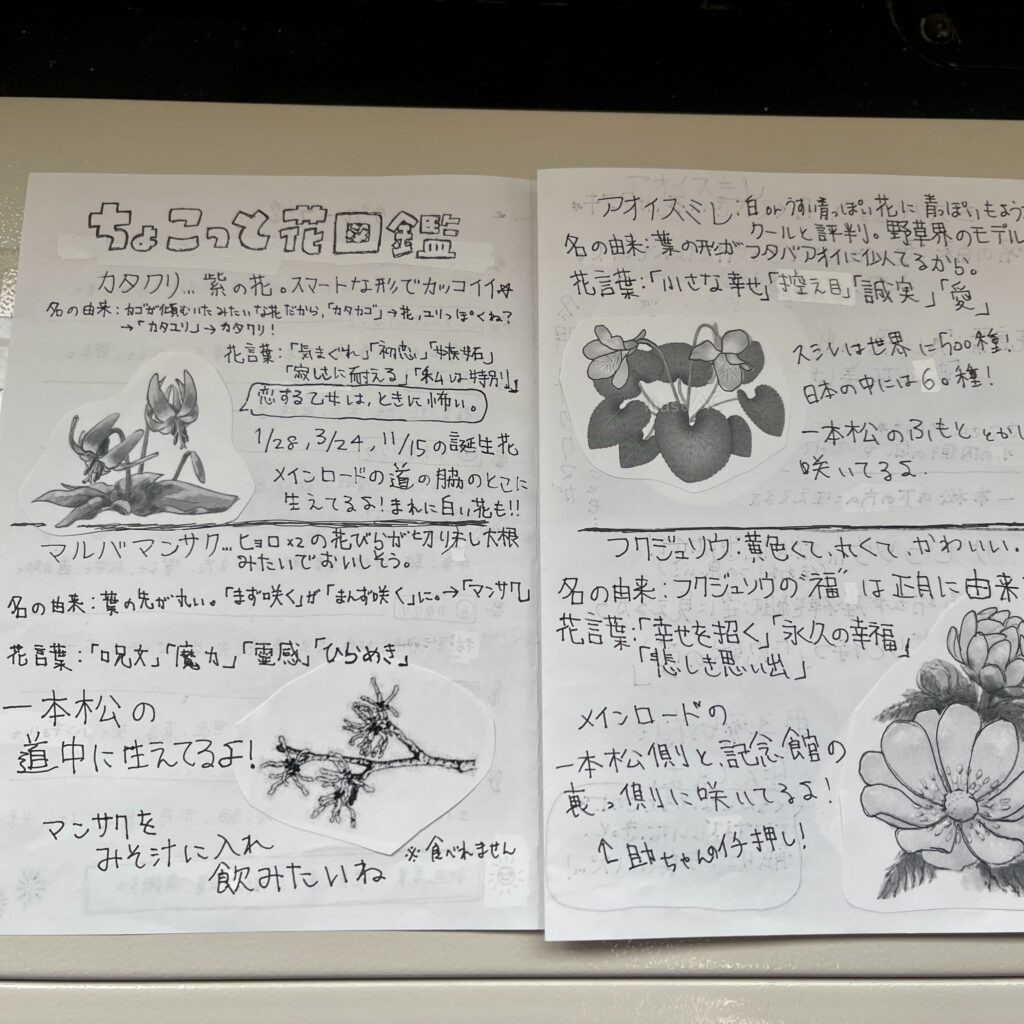 ちょこっと花図鑑
カタクリ…紫の花。スマートな形でカッコイイ☆
名の由来：カゴが傾むいたみたいな花だから、「カタカゴ」→花、ユリっぽくね？
→「カタユリ」→カタクリ！
花言葉：「気まぐれ」「初恋」「嫉妬」
「寂しさに耐える」「私は特別」
恋する乙女は、ときに怖い。
1/28，3/24，11/15の誕生花
メインロードの道の脇のとこに
生えてるよ！まれに白い花も!!
マルバマンサク…ヒョロ×2の花びらが切り干し大根
みたいでおいしそう。
名の由来：葉の先が丸い。「まず咲く」が「まんず咲く」に。→「マンサク」
花言葉：「呪文」「魔力」「霊感」「ひらめき」
一本松の
道中に生えてるよ！
マンサクを
みそ汁に入れ
飲みたいね
※食べれません
アオイスミレ：白orうすい青っぽい花に青っぽいもよう
クールと評判。野草界のモデル
名の由来：葉の形がフタバアオイに似てるから。
花言葉：「小さな幸せ」「控え目」「誠実」「愛」
スミレは世界に500種！
日本の中には60種！
一本松のふもととかに
咲いてるよ．
フクジュソウ：黄色くて、丸くて、かわいい．
名の由来：フクジュソウの"福"は正月に由来
花言葉：「幸せを招く」「永久の幸福」
「悲しき思い出」
メインロードの
一本松側と、記念館の
裏っ側に咲いてるよ！
↑助ちゃんのイチ押し！